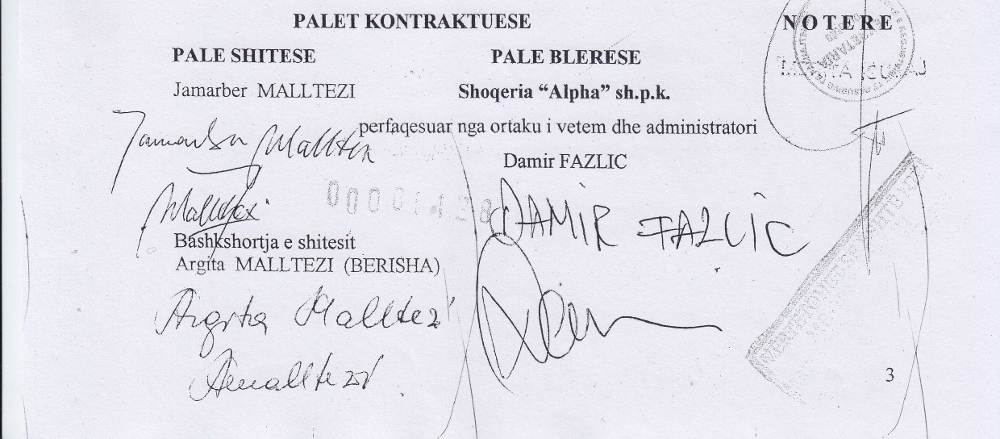 PALET KONTRAKTUESE
NOTERE
PALE SHITESE
PALE BLERESE
Jamarber MALLTEZI
Shoqeria “Alpha” sh.p.k.
perfaqesuar nga ortaku i vetem dhe administratori
Damir FAZLIC
Jamarber Malltezi
Malltezi
DAMIR FAZLIC
Bashkshortja e shitesit
Argita MALLTEZI (BERISHA)
Argita Malltezi
Amalltezi
3